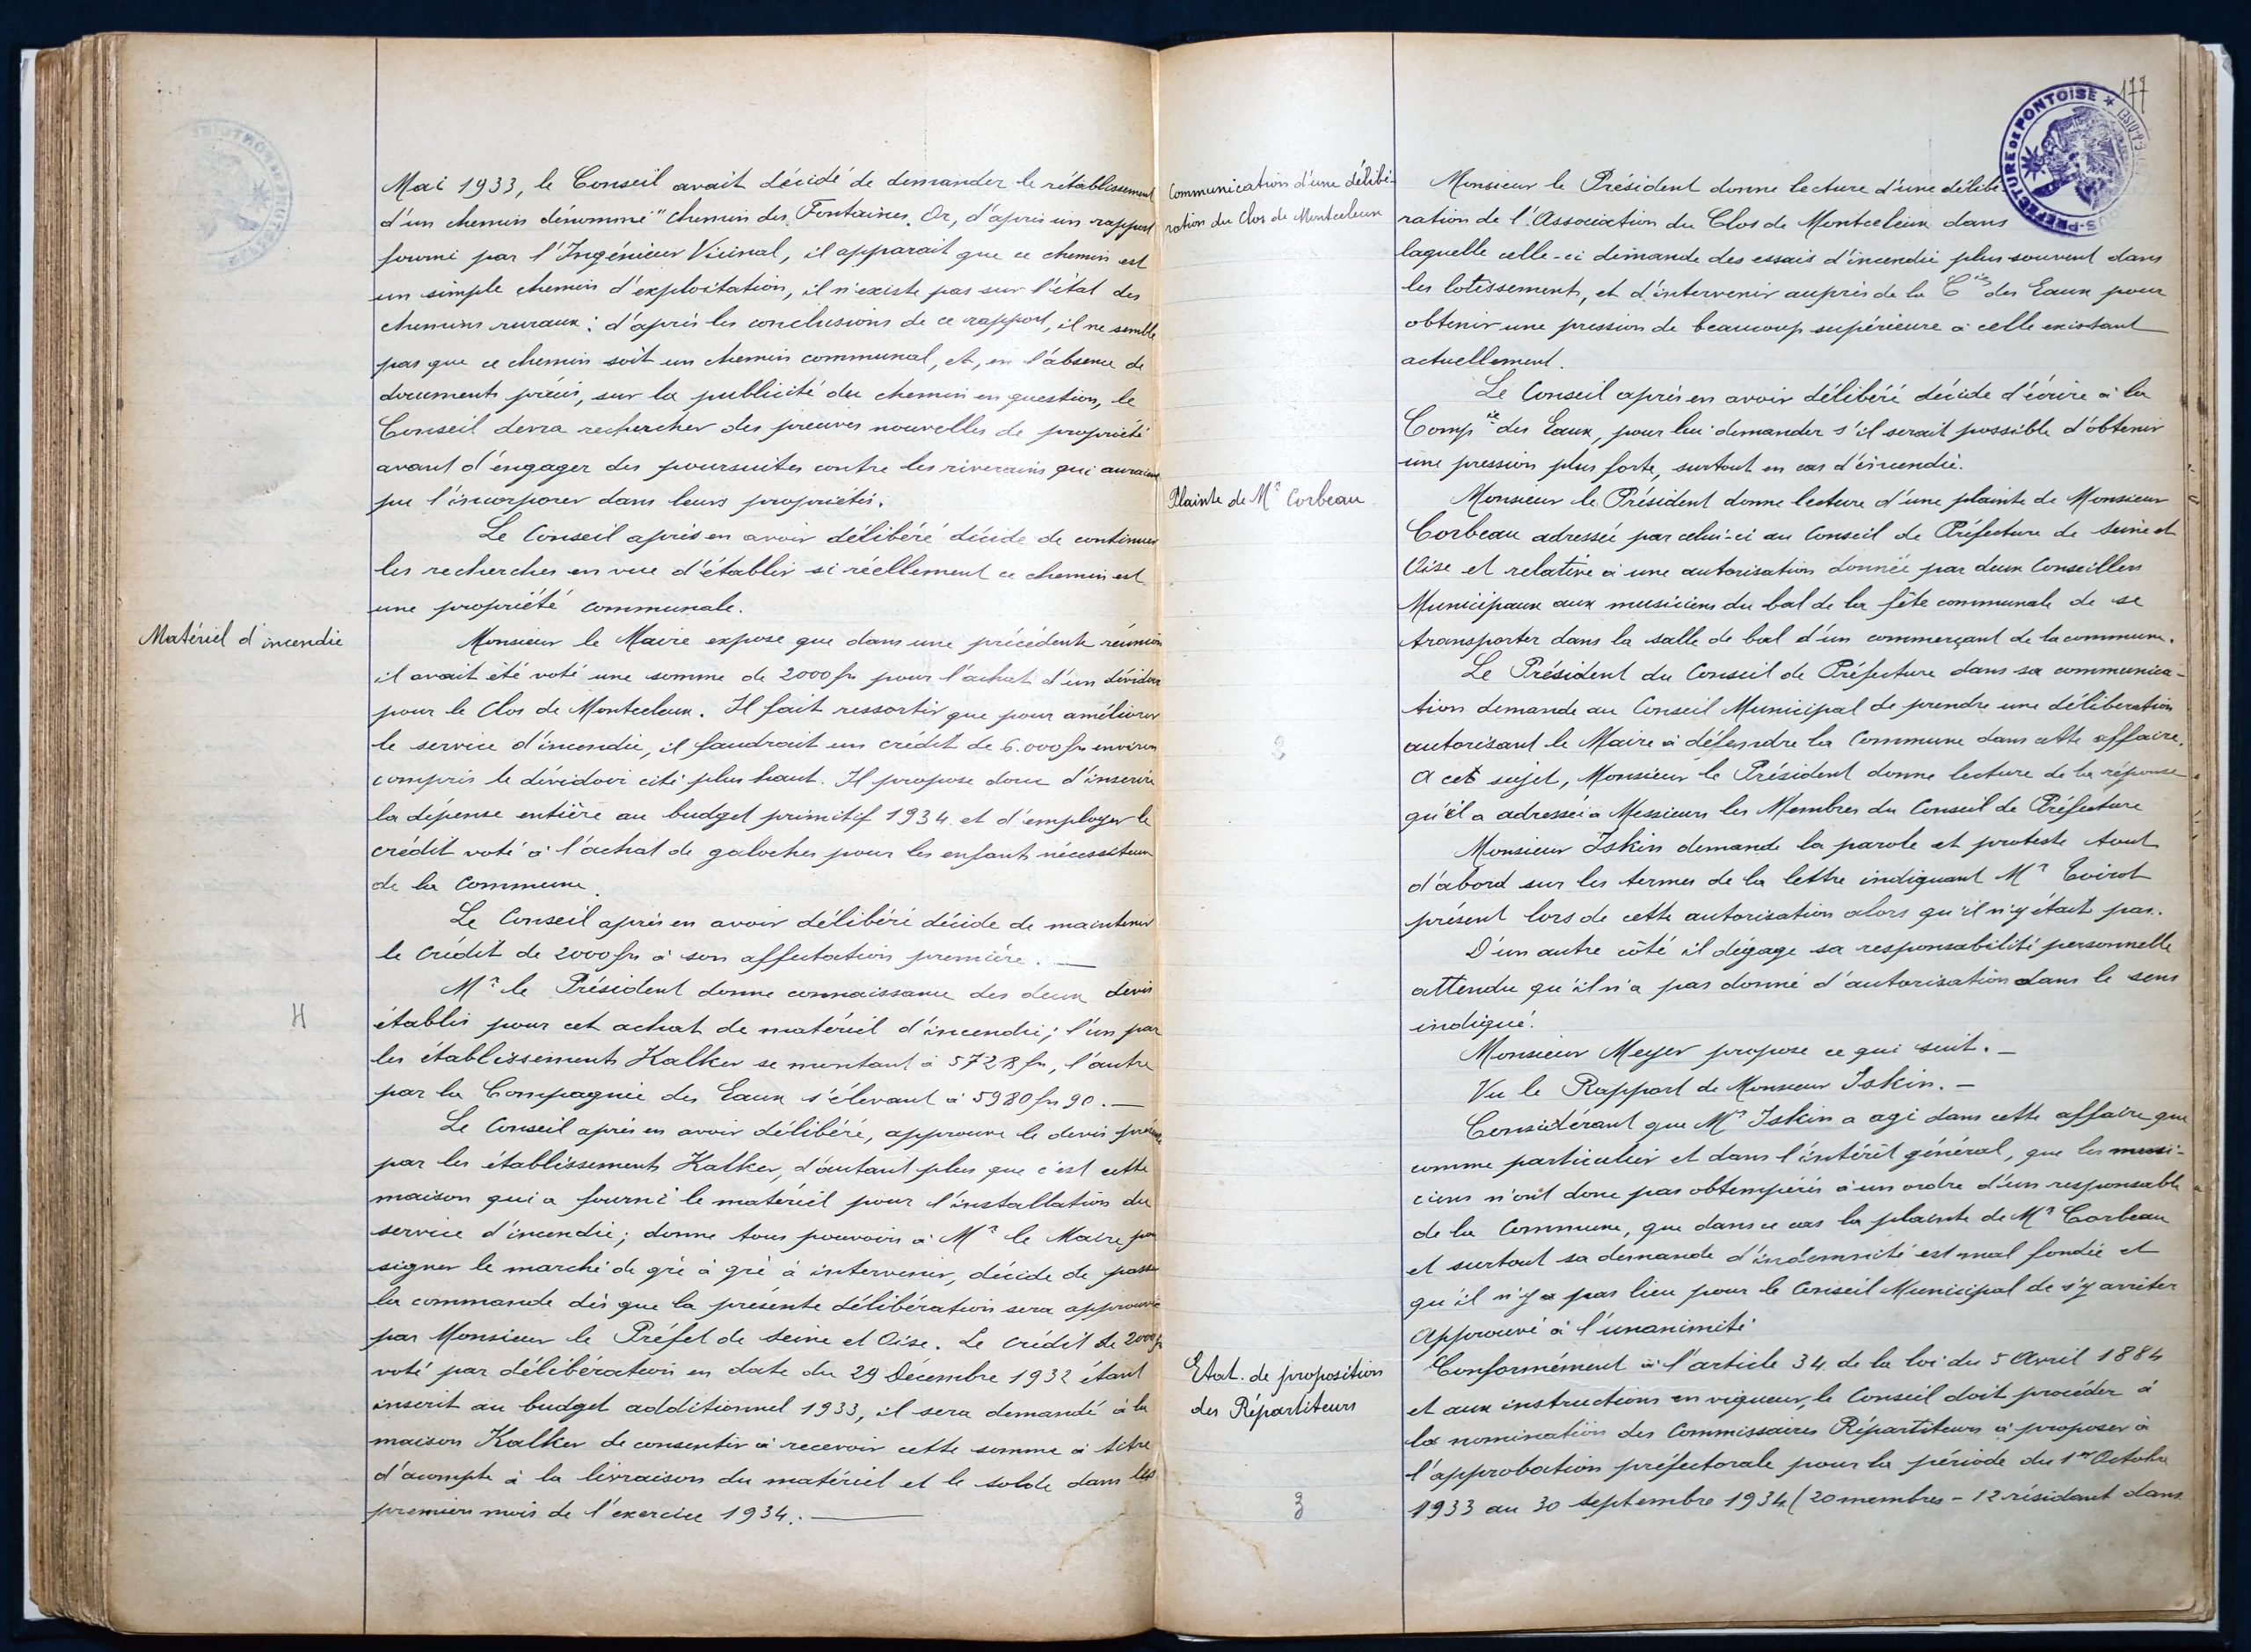 Mai 1933, le Conseil avait décidé de demander le rétablissement
d'un chemin dénommé "Chemin des Fontaines. Or, d'après un rapport
fourni par l'Ingénieur Vicinal, il apparait que ce chemin est
un simple chemin d'exploitation, il n'existe pas sur l'état des
chemins ruraux : d'après les conclusions de ce rapport, il ne semble
pas que ce chemin soit un chemin communal, et, en l'absence de
documents précis, sur la publicité du chemin en question, le
Conseil devra rechercher des preuves nouvelles de propriété
avant d'engager des poursuites contre les riverains qui auraient
pu l'incorporer dans leurs propriétés.
Le Conseil après en avoir délibéré décide de continuer
les recherches en vue d'établir si réellement ce chemin est
une propriété communale.
Matériel d'incendie
Monsieur le Maire expose que dans une précédente réunion
il avait été voté une somme de 2000 frs pour l'achat d'un dévidoir
pour le Clos de Montceleux. Il fait ressortir que pour améliorer
le service d'incendie, il faudrait un crédit de 6.000 frs environ
compris le dévidoir cité plus haut. Il propose donc d'inscrire
la dépense entière au budget primitif 1934 et d'employer le
crédit voté à l'achat de galoches pour les enfants nécessiteux
de la Commune.
Le Conseil après en avoir délibéré décide de maintenir
le crédit de 2000 frs à son affectation première. —
Mr le Président donne connaissance des deux devis
H
établis pour cet achat de matériel d'incendie ; l'un par
les établissements Kalker se montant à 5728 frs, l'autre
par la Compagnie des Eaux s'élevant à 5980 frs 90. —
Le Conseil après en avoir délibéré, approuve le devis
par les établissements Kalker, d'autant plus que c'est cette
maison qui a fourni le matériel pour l'installation du
service d'incendie ; donne tous pouvoirs à Mr le Maire pour
signer le marché de gré à gré à intervenir, décide de passer
la commande dès que la présente délibération sera approuvée
par Monsieur le Préfet de Seine et Oise. Le crédit de 2000 fr
voté par délibération en date du 29 Décembre 1932 étant
inscrit au budget additionnel 1933, il sera demandé à la
maison Kalker de consentir à recevoir cette somme à titre
d'acompte à la livraison du matériel et le solde dans les
premiers mois de l'exercice 1934. —
177
SOUS-PRÉFECTURE DE PONTOISE
(SEINE-&-OISE)
Communication d'une délibé-
ration du Clos de Montceleux
Monsieur le Président donne lecture d'une délibé
ration de l'Association du Clos de Montceleux dans
laquelle celle-ci demande des essais d'incendie plus souvent dans
les lotissements, et d'intervenir auprès de la Cie des Eaux pour
obtenir une pression de beaucoup supérieure à celle existant
actuellement.
Le Conseil après en avoir délibéré décide d'écrire à la
Compie des Eaux, pour lui demander s'il serait possible d'obtenir
une pression plus forte, surtout en cas d'incendie.
Plainte de Mr Corbeau
Monsieur le Président donne lecture d'une plainte de Monsieur
Corbeau adressée par celui-ci au Conseil de Préfecture de Seine et
Oise et relative à une autorisation donnée par deux Conseillers
Municipaux aux musiciens du bal de la fête communale de se
transporter dans la salle de bal d'un commerçant de la commune.
Le Président du Conseil de Préfecture dans sa communica-
tion demande au Conseil Municipal de prendre une délibération
autorisant le Maire à défendre la Commune dans cette affaire.
A cet sujet, Monsieur le Président donne lecture de la réponse
qu'il a adressée à Messieurs les Membres du Conseil de Préfecture
Monsieur Iskin demande la parole et proteste tout
d'abord sur les termes de la lettre indiquant Mr
présent lors de cette autorisation alors qu'il n'y était pas.
D'un autre côté il dégage sa responsabilité personnelle
attendu qu'il n'a pas donné d'autorisation dans le sens
indiqué.
Monsieur Meyer propose ce qui suit. —
Vu le Rapport de Monsieur Iskin. —
Considérant que Mr Iskin a agi dans cette affaire que
comme particulier et dans l'intérêt général, que les musi-
ciens n'ont donc pas obtempérés à un ordre d'un responsable
de la Commune, que dans ce cas la plainte de Mr Corbeau
et surtout sa demande d'indemnité est mal fondée et
qu'il n'y a pas lieu pour le Conseil Municipal de s'y arrêter
Approuvé à l'unanimité
Etat de proposition
des Répartiteurs
Conformément à l'article 34 de la loi du 5 Avril 1884
et aux instructions en vigueur, le Conseil doit procéder à
la nomination des Commissaires Répartiteurs à proposer à
l'approbation préfectorale pour la période du 1er Octobre
3
1933 au 30 septembre 1934 (20 membres - 12 résidant dans